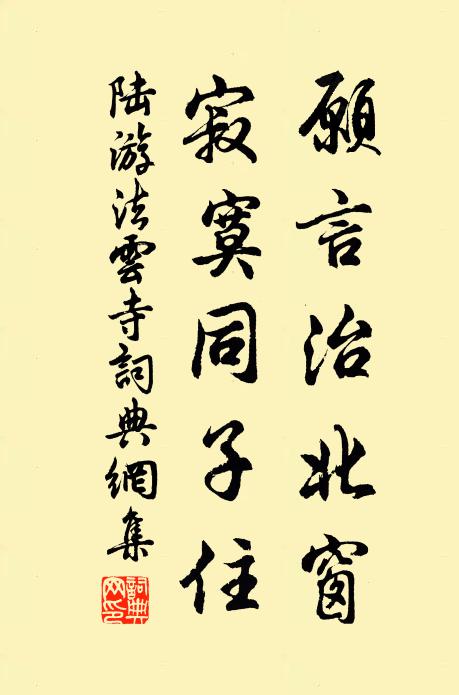 願言治北窗
寂寞同子住
陆游法雲寺詞典網集
詞典网印